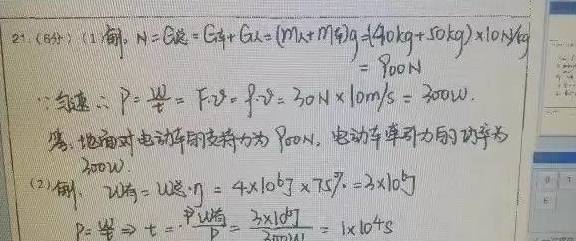 21.(6分)(1)解. N=G总=G车+G人=(m人+m车)g=(40kg+50kg)×10N/kg
=900N
∵匀速∴P=W/t=F·v=f·v=30N×10m/s=300W.
答.地面对电动车的支持力为900N,电动车牵引力的功率为
300W.
(2)解. W有=W总·η=4×10⁶J×75%=3×10⁶J
P=W/t⇒t=W有/P=3×10⁶J/300W=1×10⁴s